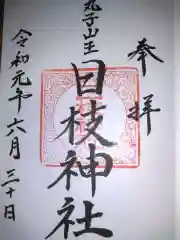 奉拝
丸子山王
日枝神社
令和元年六月三十日